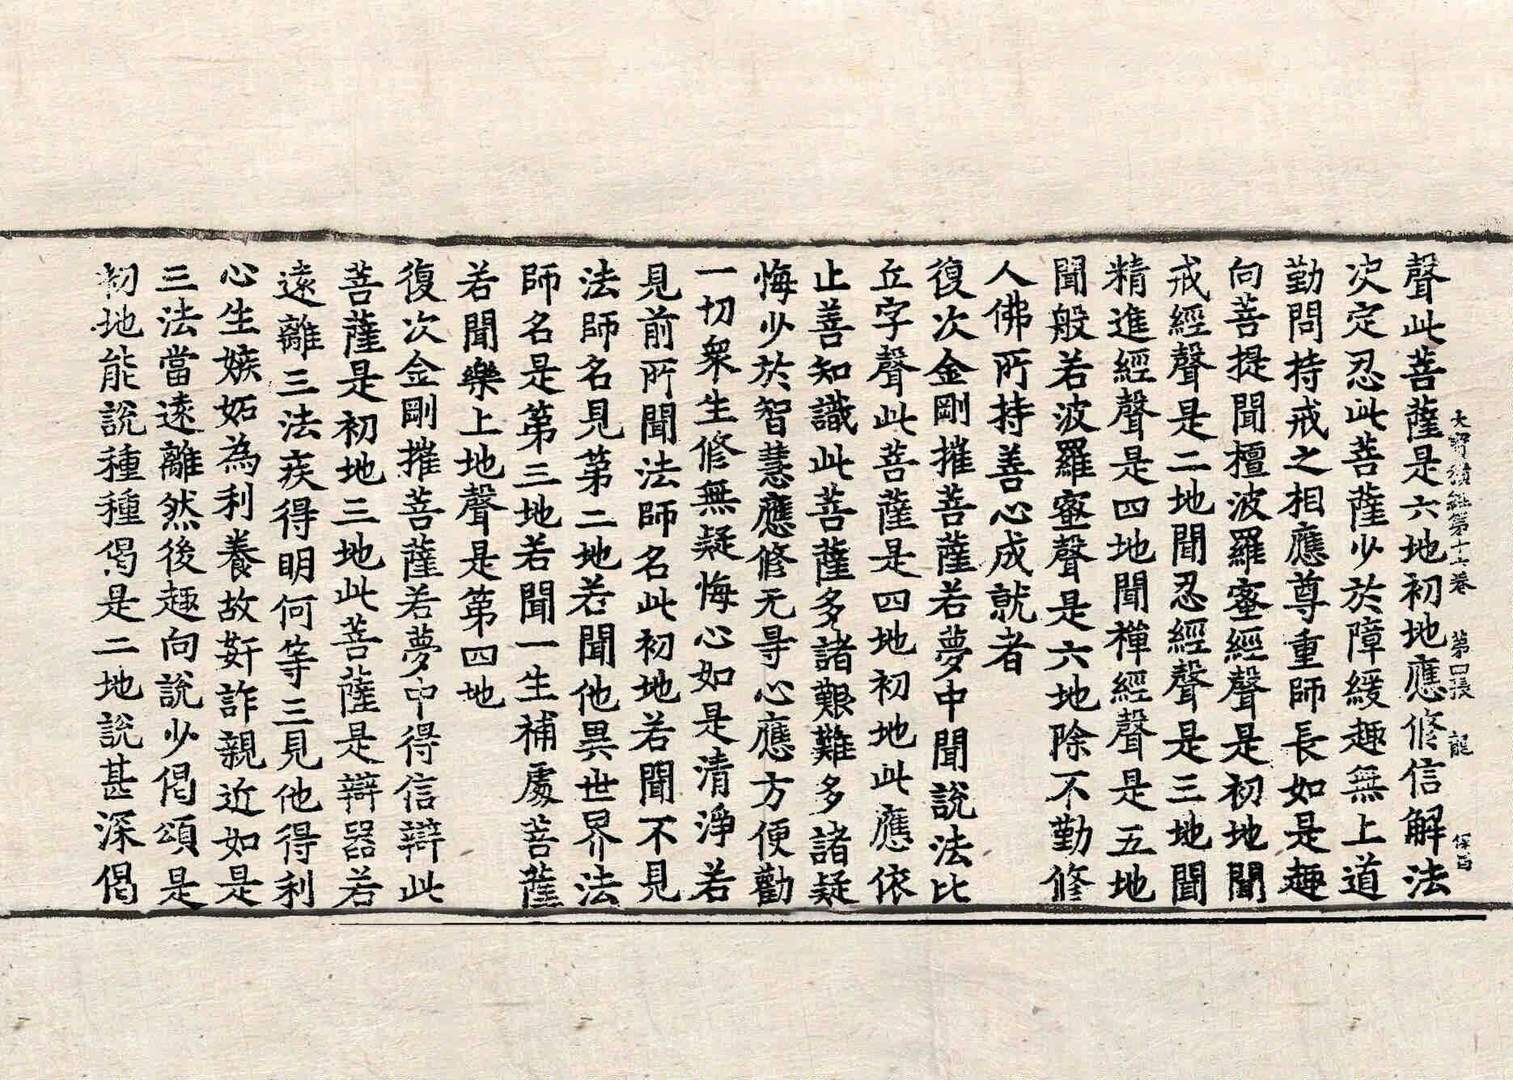 大寶積經第十六卷 第四張 龍
聲此菩薩是六地初地應修信解法
決定忍此菩薩少於障緩趣無上道
勤問持戒之相應尊重師長如是趣
向菩提聞檀波羅蜜經聲是初地聞
戒經聲是二地聞忍經聲是三地聞
精進經聲是四地聞禪經聲是五地
聞般若波羅蜜聲是六地除不勤修
人佛所持善心成就者
復次金剛摧菩薩若夢中聞說法比
丘字聲此菩薩是四地初地此應依
止善知識此菩薩多諸艱難多諸疑
悔少於智慧應修无㝵心應方便勸
一切衆生修無疑悔心如是清淨若
見前所聞法師名此初地若聞不見
法師名見第二地若聞他異世界法
師名是第三地若聞一生補處菩薩
若聞樂上地聲是第四地
復次金剛摧菩薩若夢中得信辯此
菩薩是初地三地此菩薩是辯器若
遠離三法疾得明何等三見他得利
心生嫉妬為利養故姧詐親近如是
三法當遠離然後趣向說少偈頌是
初地能說種種偈是二地說甚深偈